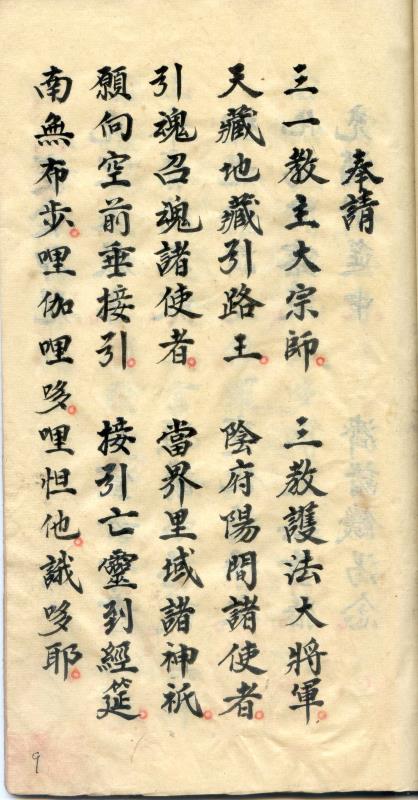 奉請
三一教主大宗師。 三教護法大將軍。
天藏地藏引路王。 陰府陽間諸使者。
引魂召魂諸使者。 當界里域諸神祇。
願向空前垂接引。 接引亡靈到經筵。
南無布步。哩伽哩哆。哩怛他。誐哆耶。
9